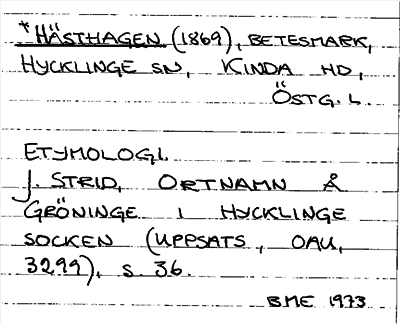 *HÄSTHAGEN (1869), BETESMARK,
HYCKLINGE SN, KINDA HD,
ÖSTG. L.
ETYMOLOGI.
J. STRID, ORTNAMN Å
GRÖNINGE I HYCKLINGE
SOCKEN (UPPSATS, OAU,
3299), S. 36.
BME 1973